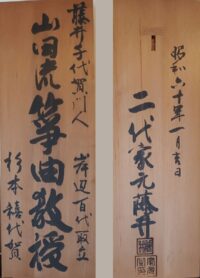 藤井千代賀門人
岸辺百代取立
山田流箏曲教授
杉本禧代賀
昭和六十年一月吉日
二代家元藤井